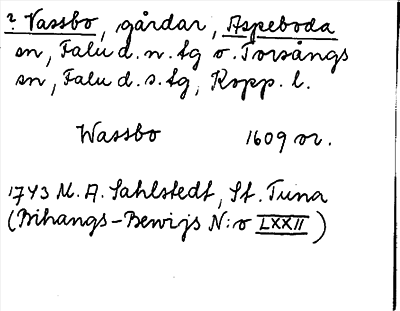 ? Vassbo, gårdar, Aspeboda
sn, Falu d. n. tg o. Torsångs
sn, Falu d. s. tg, Kopp. l.
Wassbo 1609 or.
1743 M. A. Sahlstedt, St. Tuna
(Bihangs-Bewijs N:o LXXII)